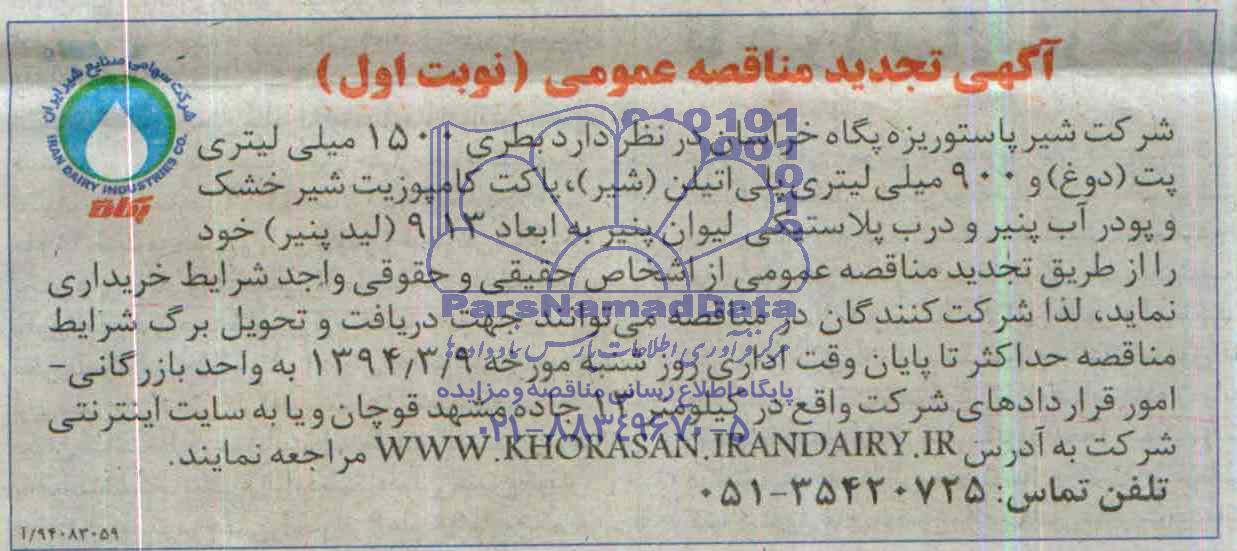 آگهی تجدید مناقصه عمومی (نوبت اول)
شرکت سهامی صنایع شیر ایران
IRAN DAIRY INDUSTRIES CO.
پگاه
شرکت شیر پاستوریزه پگاه خراسان در نظر دارد بطری ۱۵۰۰ میلی لیتری
پت (دوغ) و ۹۰۰ میلی لیتری پلی اتیلن (شیر)، پاکت کامپوزیت شیر خشک
و پودر آب پنیر و درب پلاستیکی لیوان پنیر به ابعاد ۱۳ ۹ (لید پنیر) خود
را از طریق تجدید مناقصه عمومی از اشخاص حقیقی و حقوقی واجد شرایط خریداری
نماید، لذا شرکت کنندگان در مناقصه می‌توانند جهت دریافت و تحویل برگ شرایط
مناقصه حداکثر تا پایان وقت اداری روز شنبه مورخه ۱۳۹۴/۳/۹ به واحد بازرگانی-
امور قراردادهای شرکت واقع در کیلومتر ۱۳ جاده مشهد قوچان و یا به سایت اینترنتی
شرکت به آدرس WWW.KHORASAN.IRANDAIRY.IR مراجعه نمایند.
تلفن تماس: ۳۵۴۲۰۷۲۵-۰۵۱
۹۴۰۸۳۰۵۹/آ
ParsNamadData
مرکز فرآوری اطلاعات پارس نماد داده‌ها
پایگاه اطلاع رسانی مناقصه و مزایده
۰۲۱-۸۸۳۴۹۶۷۰-۵